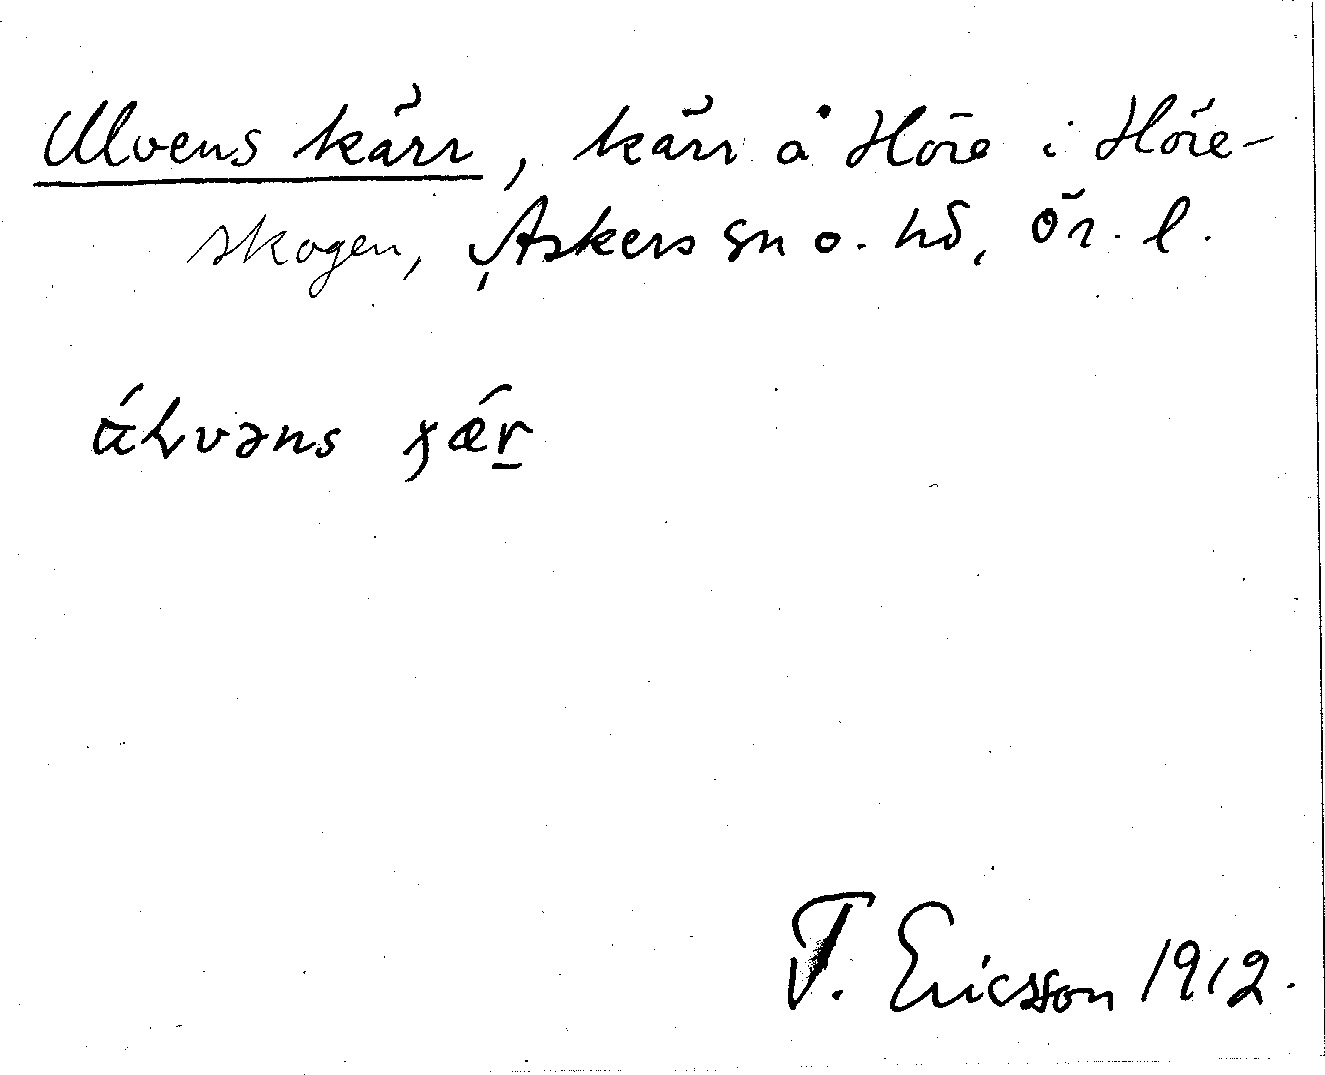 Ulvens kärr, kärr å Höre i Höre-
skogen, Askers sn o. hd, Ör. l.
ɯ́lvəns ɕǽr̲
T. Ericsson 1912.